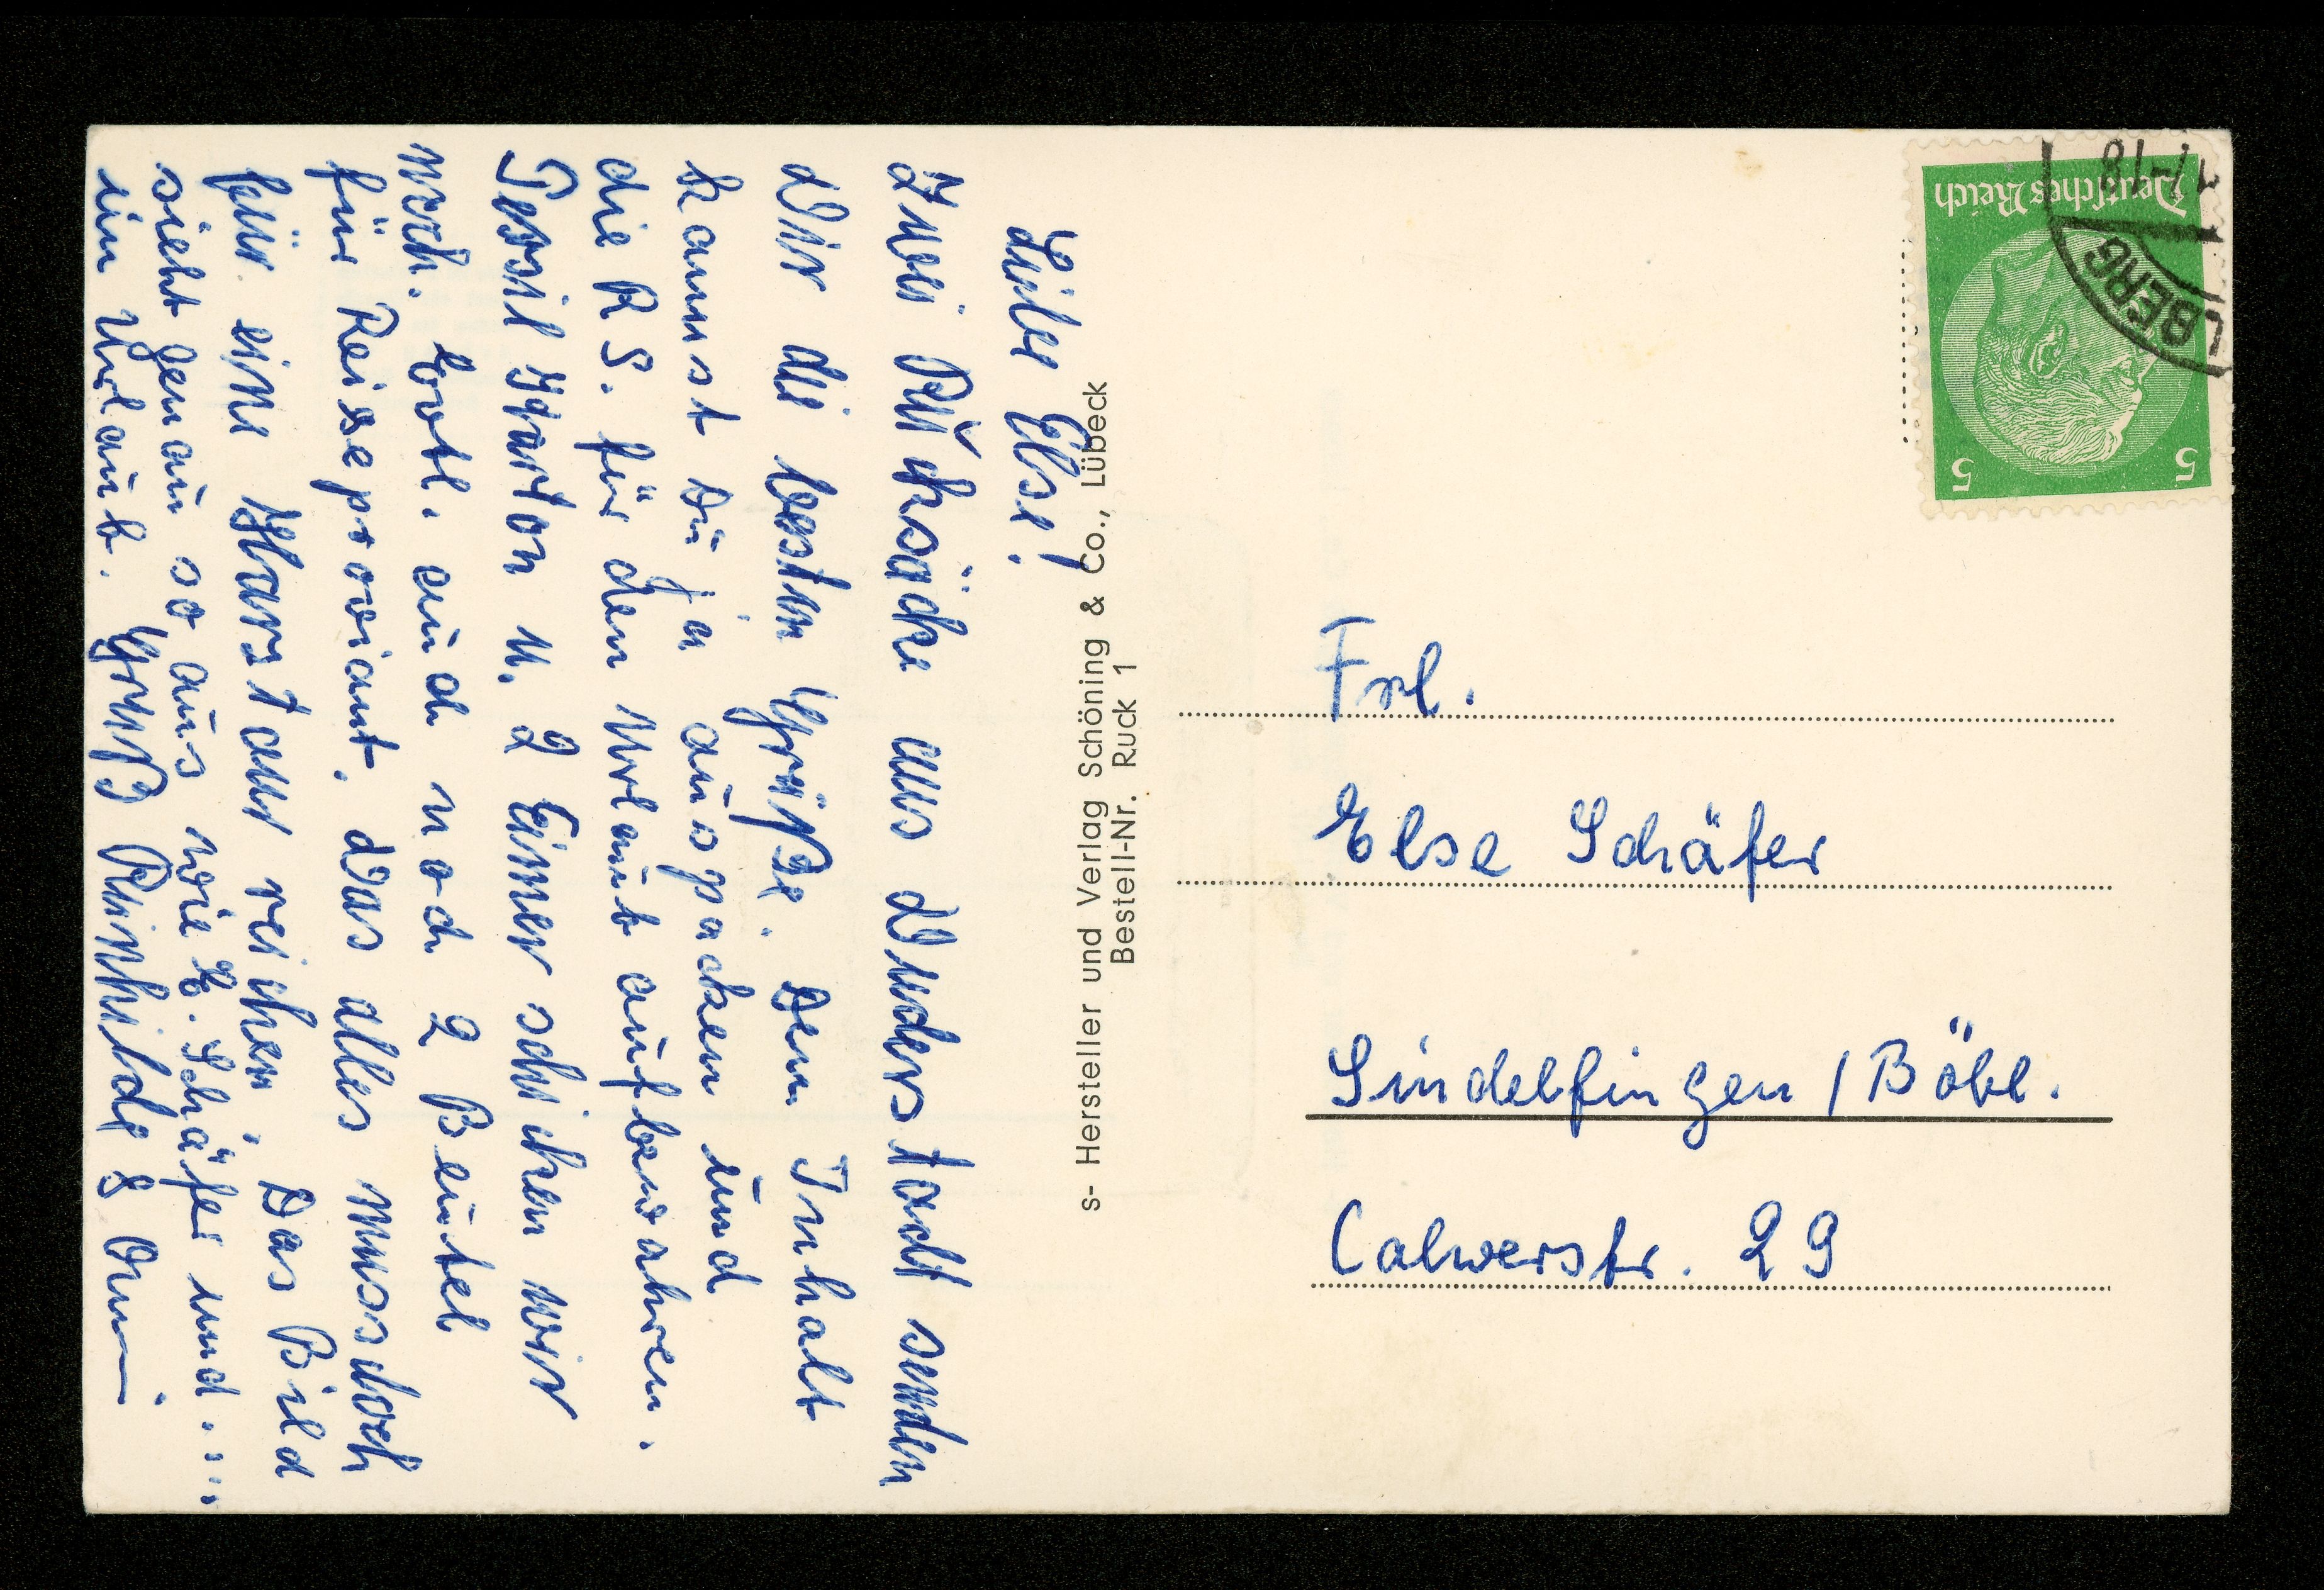 Liebe Else!
Zwei Rucksäcke aus Dudersstadt senden
Dir die besten Grüße. Den Inhalt
kannst Du ja auspacken und
die RS. für den Urlaub aufbewahren.
Persil Karton u. 2 Eimer schicken wir
noch. evtl. auch noch 2 Beutel
für Reiseproviant. Das alles muss doch
für eine Harztour reichen. Das Bild
sieht genau so aus wie E. Schäfer und....
im Urlaub. Gruß Reinhilde &
s- Hersteller und Verlag Schöning & Co., Lübeck
Bestell-Nr. Ruck 1
Deutsches Reich
5 5
17-18
BERG
Frl.
Else Schäfer
Sindelfingen / Böbl.
Calwerstr. 29